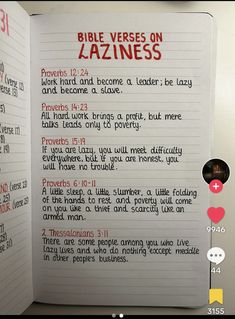 BIBLE VERSES ON
LAZINESS
Proverbs 12:24
Work hard and become a leader; be lazy
and become a slave.
Proverbs 14:23
All hard work brings a profit, but mere
talks leads only to poverty.
Proverbs 15:19
If you are lazy, you will meet difficulty
everywhere, but if you are honest, you
will have no trouble.
Proverbs 6:10-11
A little sleep, a little slumber, a little folding
of the hands to rest and poverty will come
on you like a thief and scarcity like an
armed man.
2 Thessalonians 3:11
There are some people among you who live
lazy lives and who do nothing except meddle
in other people's business.
9946
44
3155